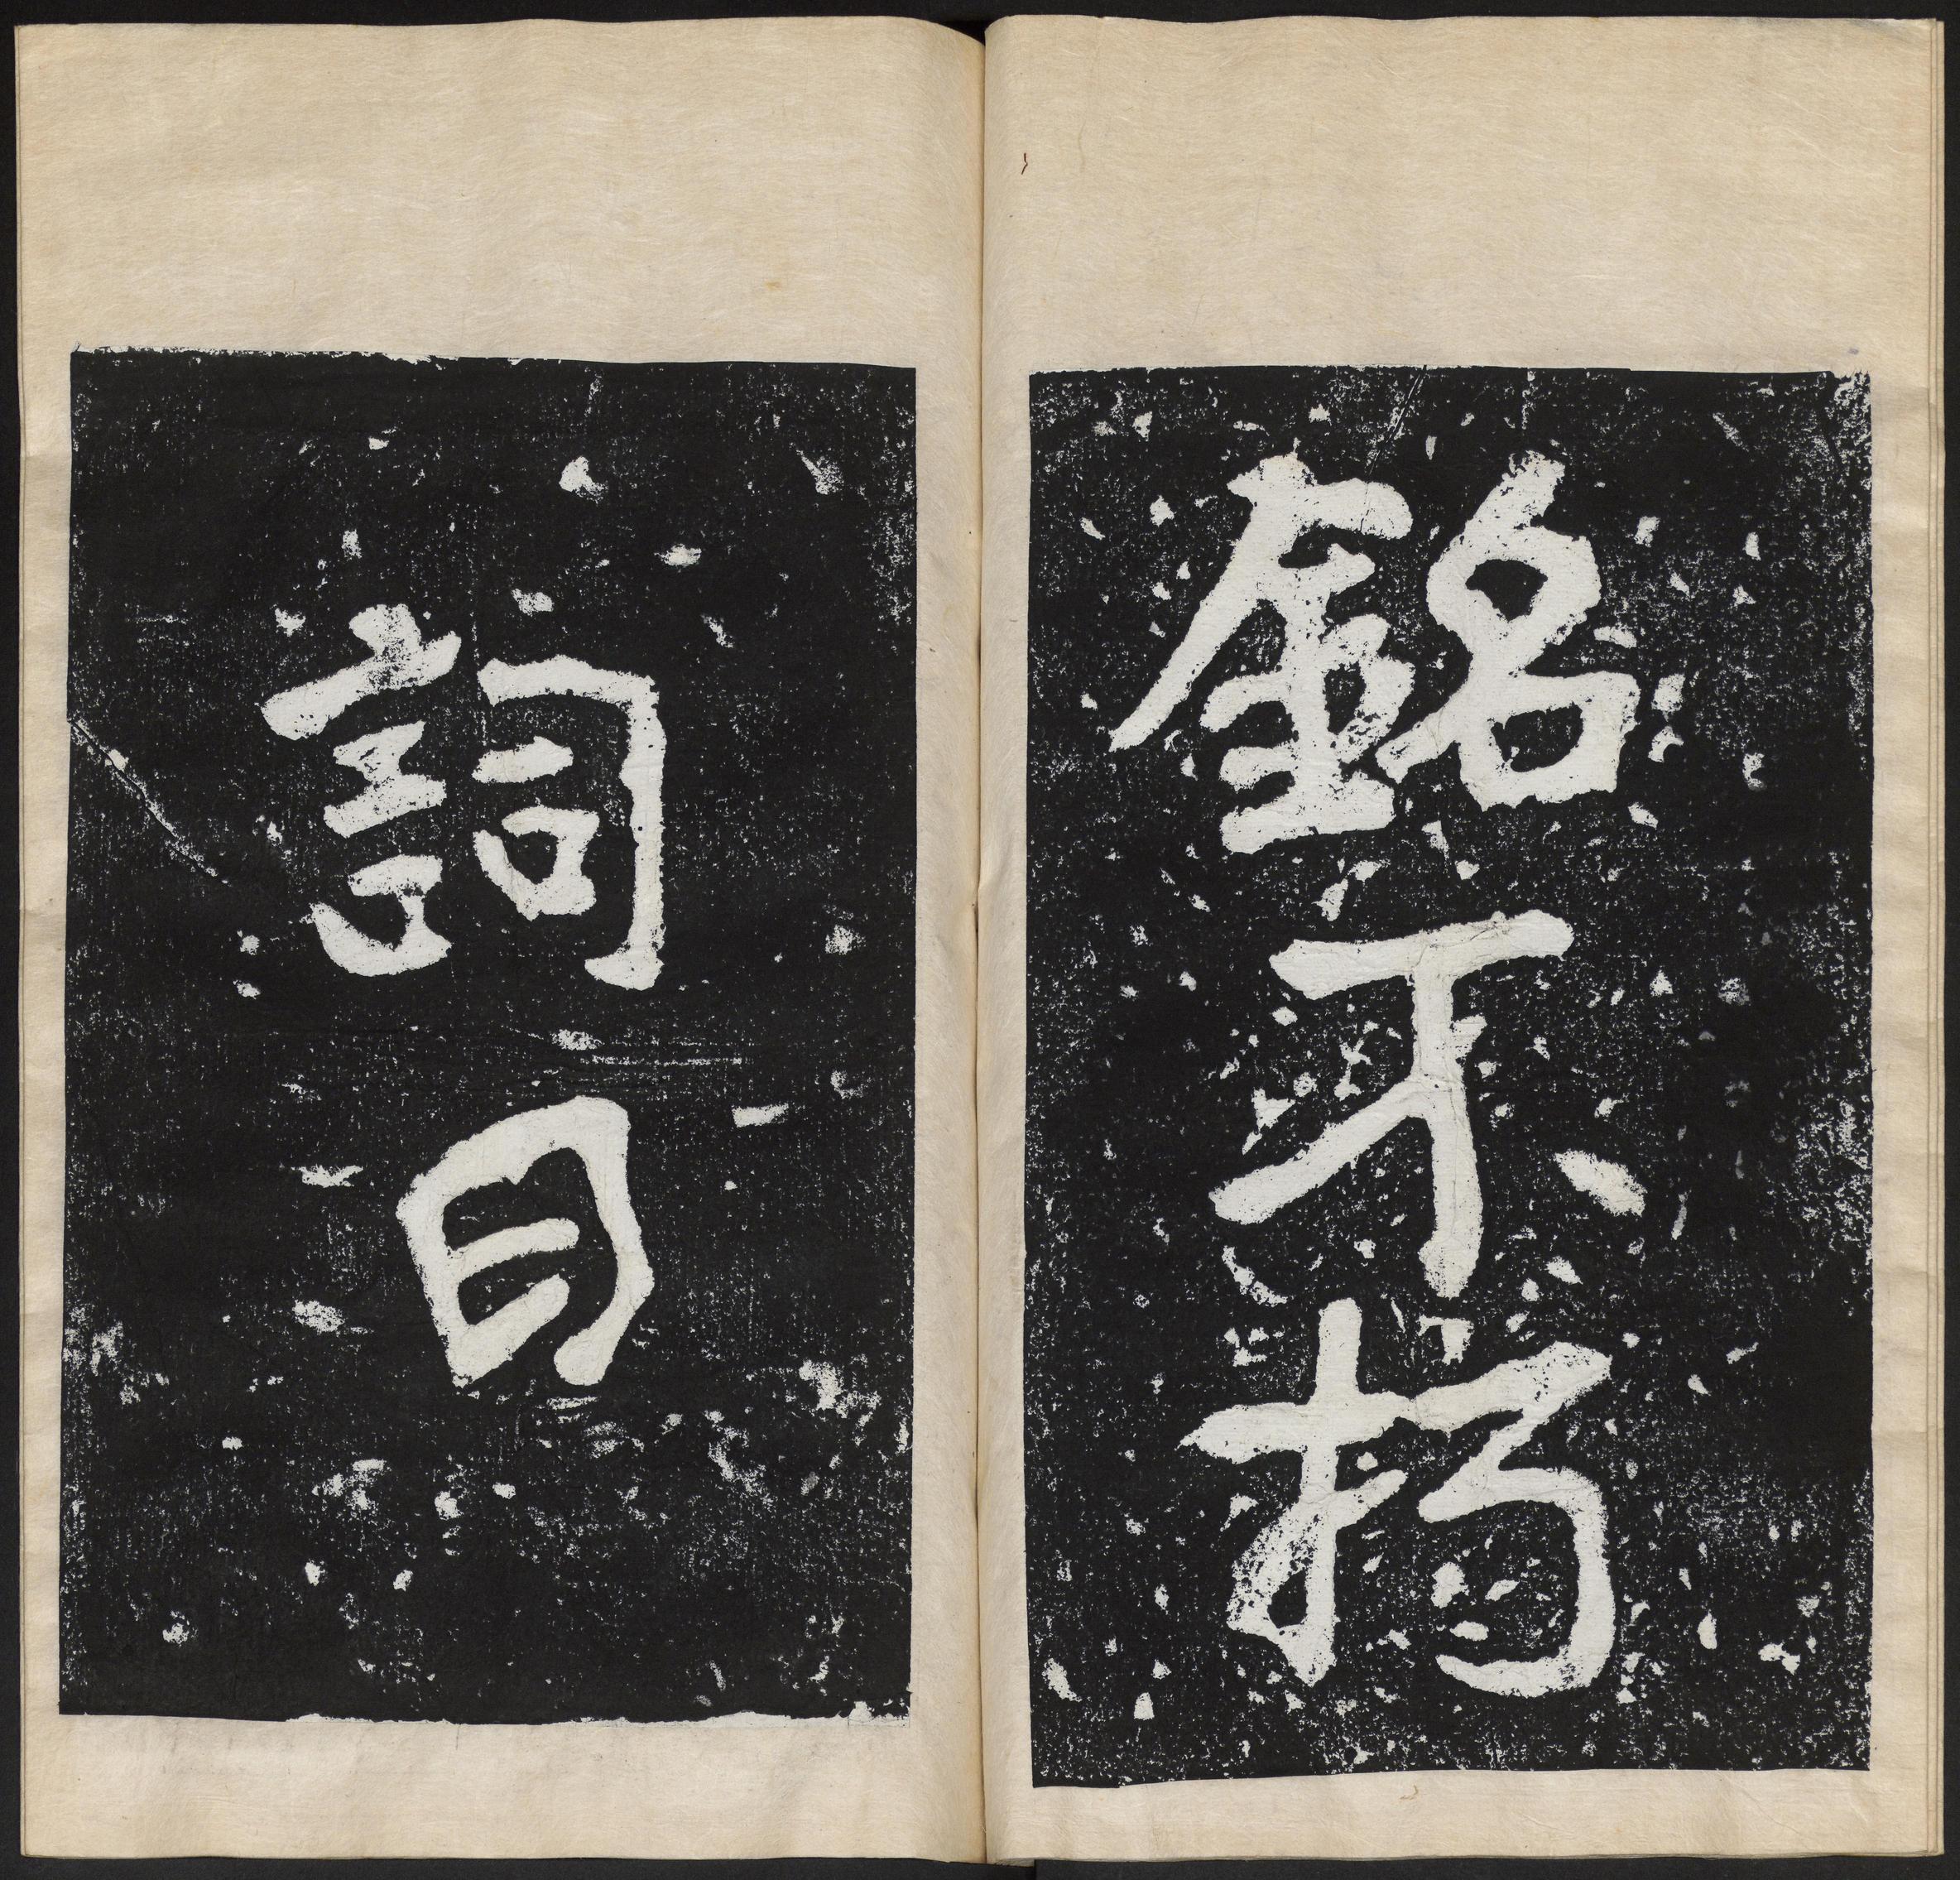 銘不朽
詞曰